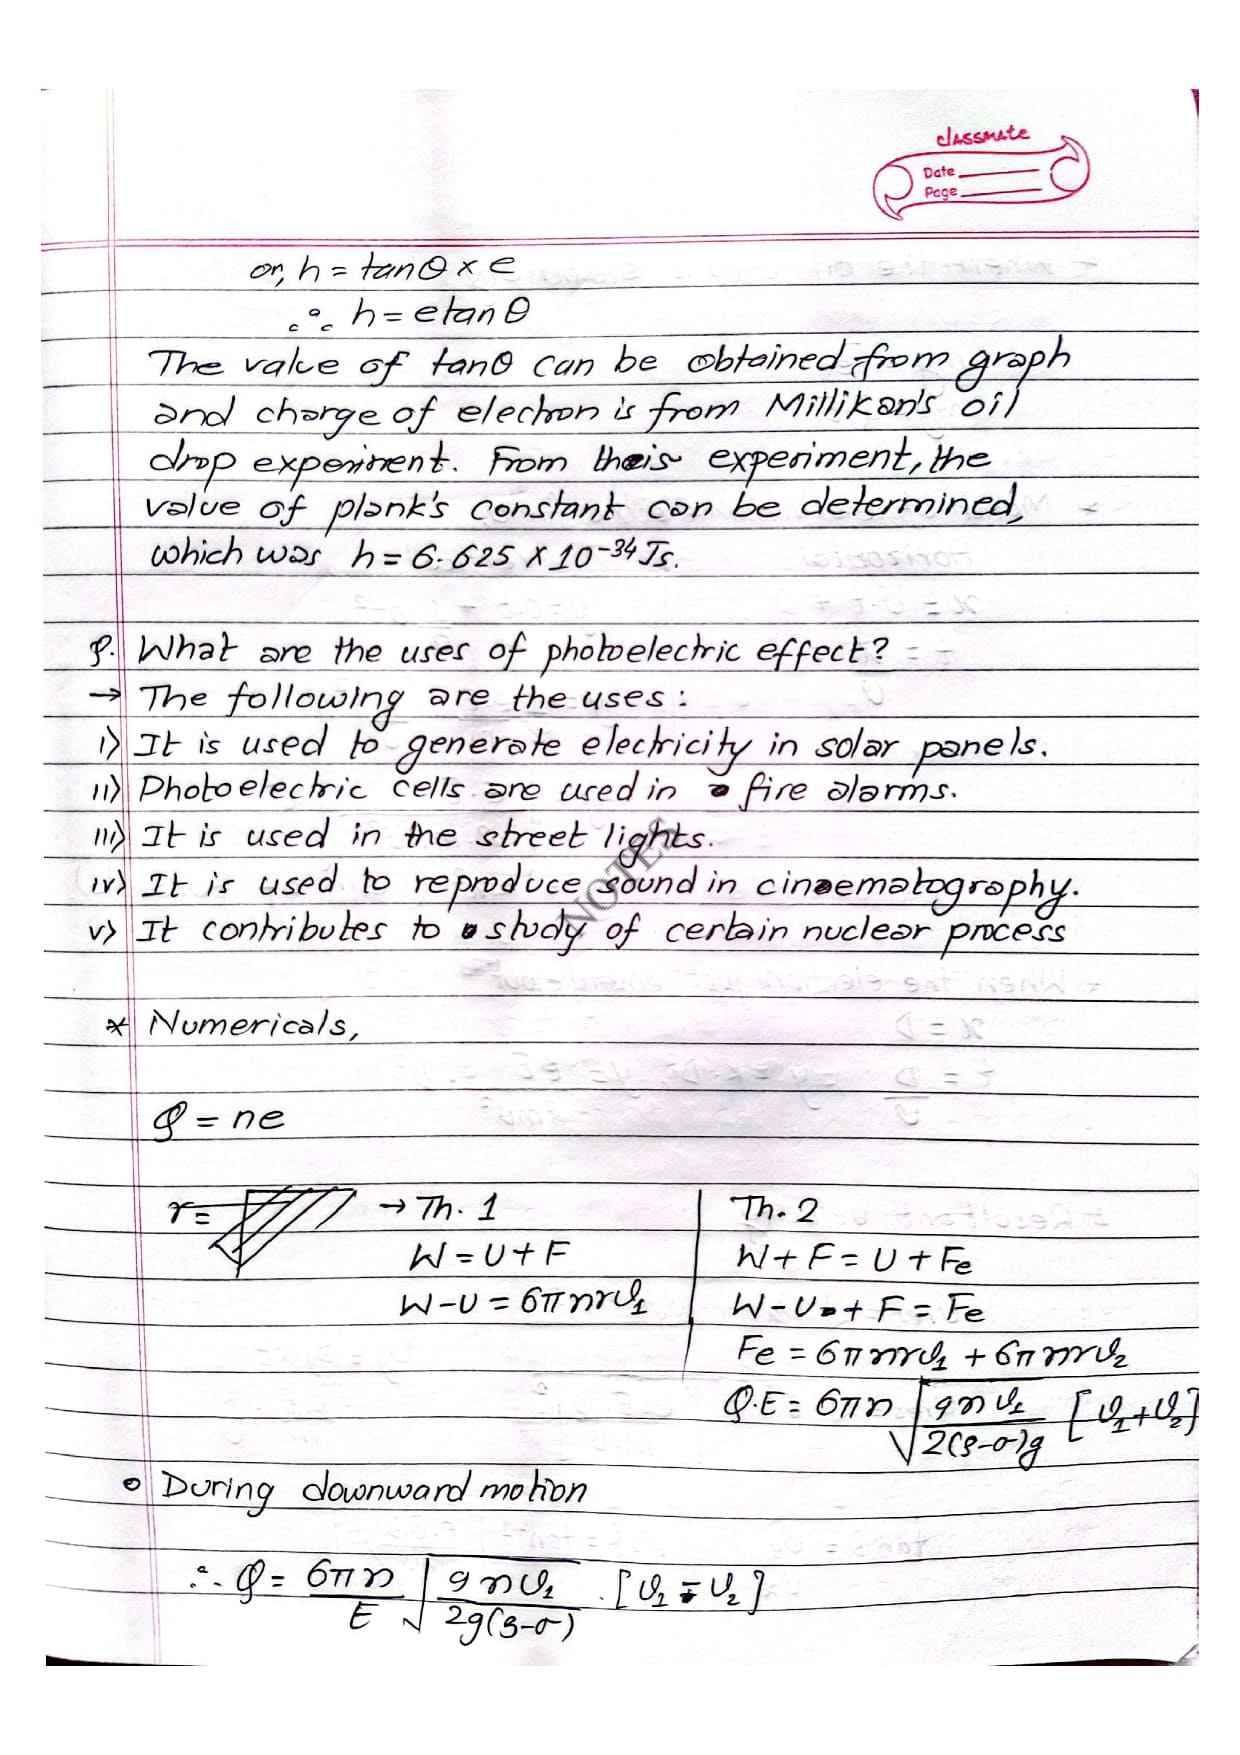 classmate
Date
Page
or, h = tanθ × e
∴ h = etanθ
The value of tanθ can be obtained from graph
and charge of electron is from Millikan's oil
drop experiment. From this experiment, the
value of plank's constant can be determined,
which was h = 6.625 × 10⁻³⁴ Js.
Q. What are the uses of photoelectric effect?
→ The following are the uses:
i) It is used to generate electricity in solar panels.
ii) Photoelectric cells are used in fire alarms.
iii) It is used in the street lights.
NOTES
iv) It is used to reproduce sound in cinematography.
v) It contributes to study of certain nuclear process
* Numericals,
Q = ne
r = → Th. 1
W = U + F
W - U = 6πηrv₁
Th. 2
W + F = U + Fe
W - U + F = Fe
Fe = 6πηrv₁ + 6πηrv₂
Q.E = 6πη √(9ηv₁/2(ρ-σ)g) [v₁+v₂]
• During downward motion
∴ Q = 6πη/E √(9ηv₁/2g(ρ-σ)) . [v₁ ∓ v₂]